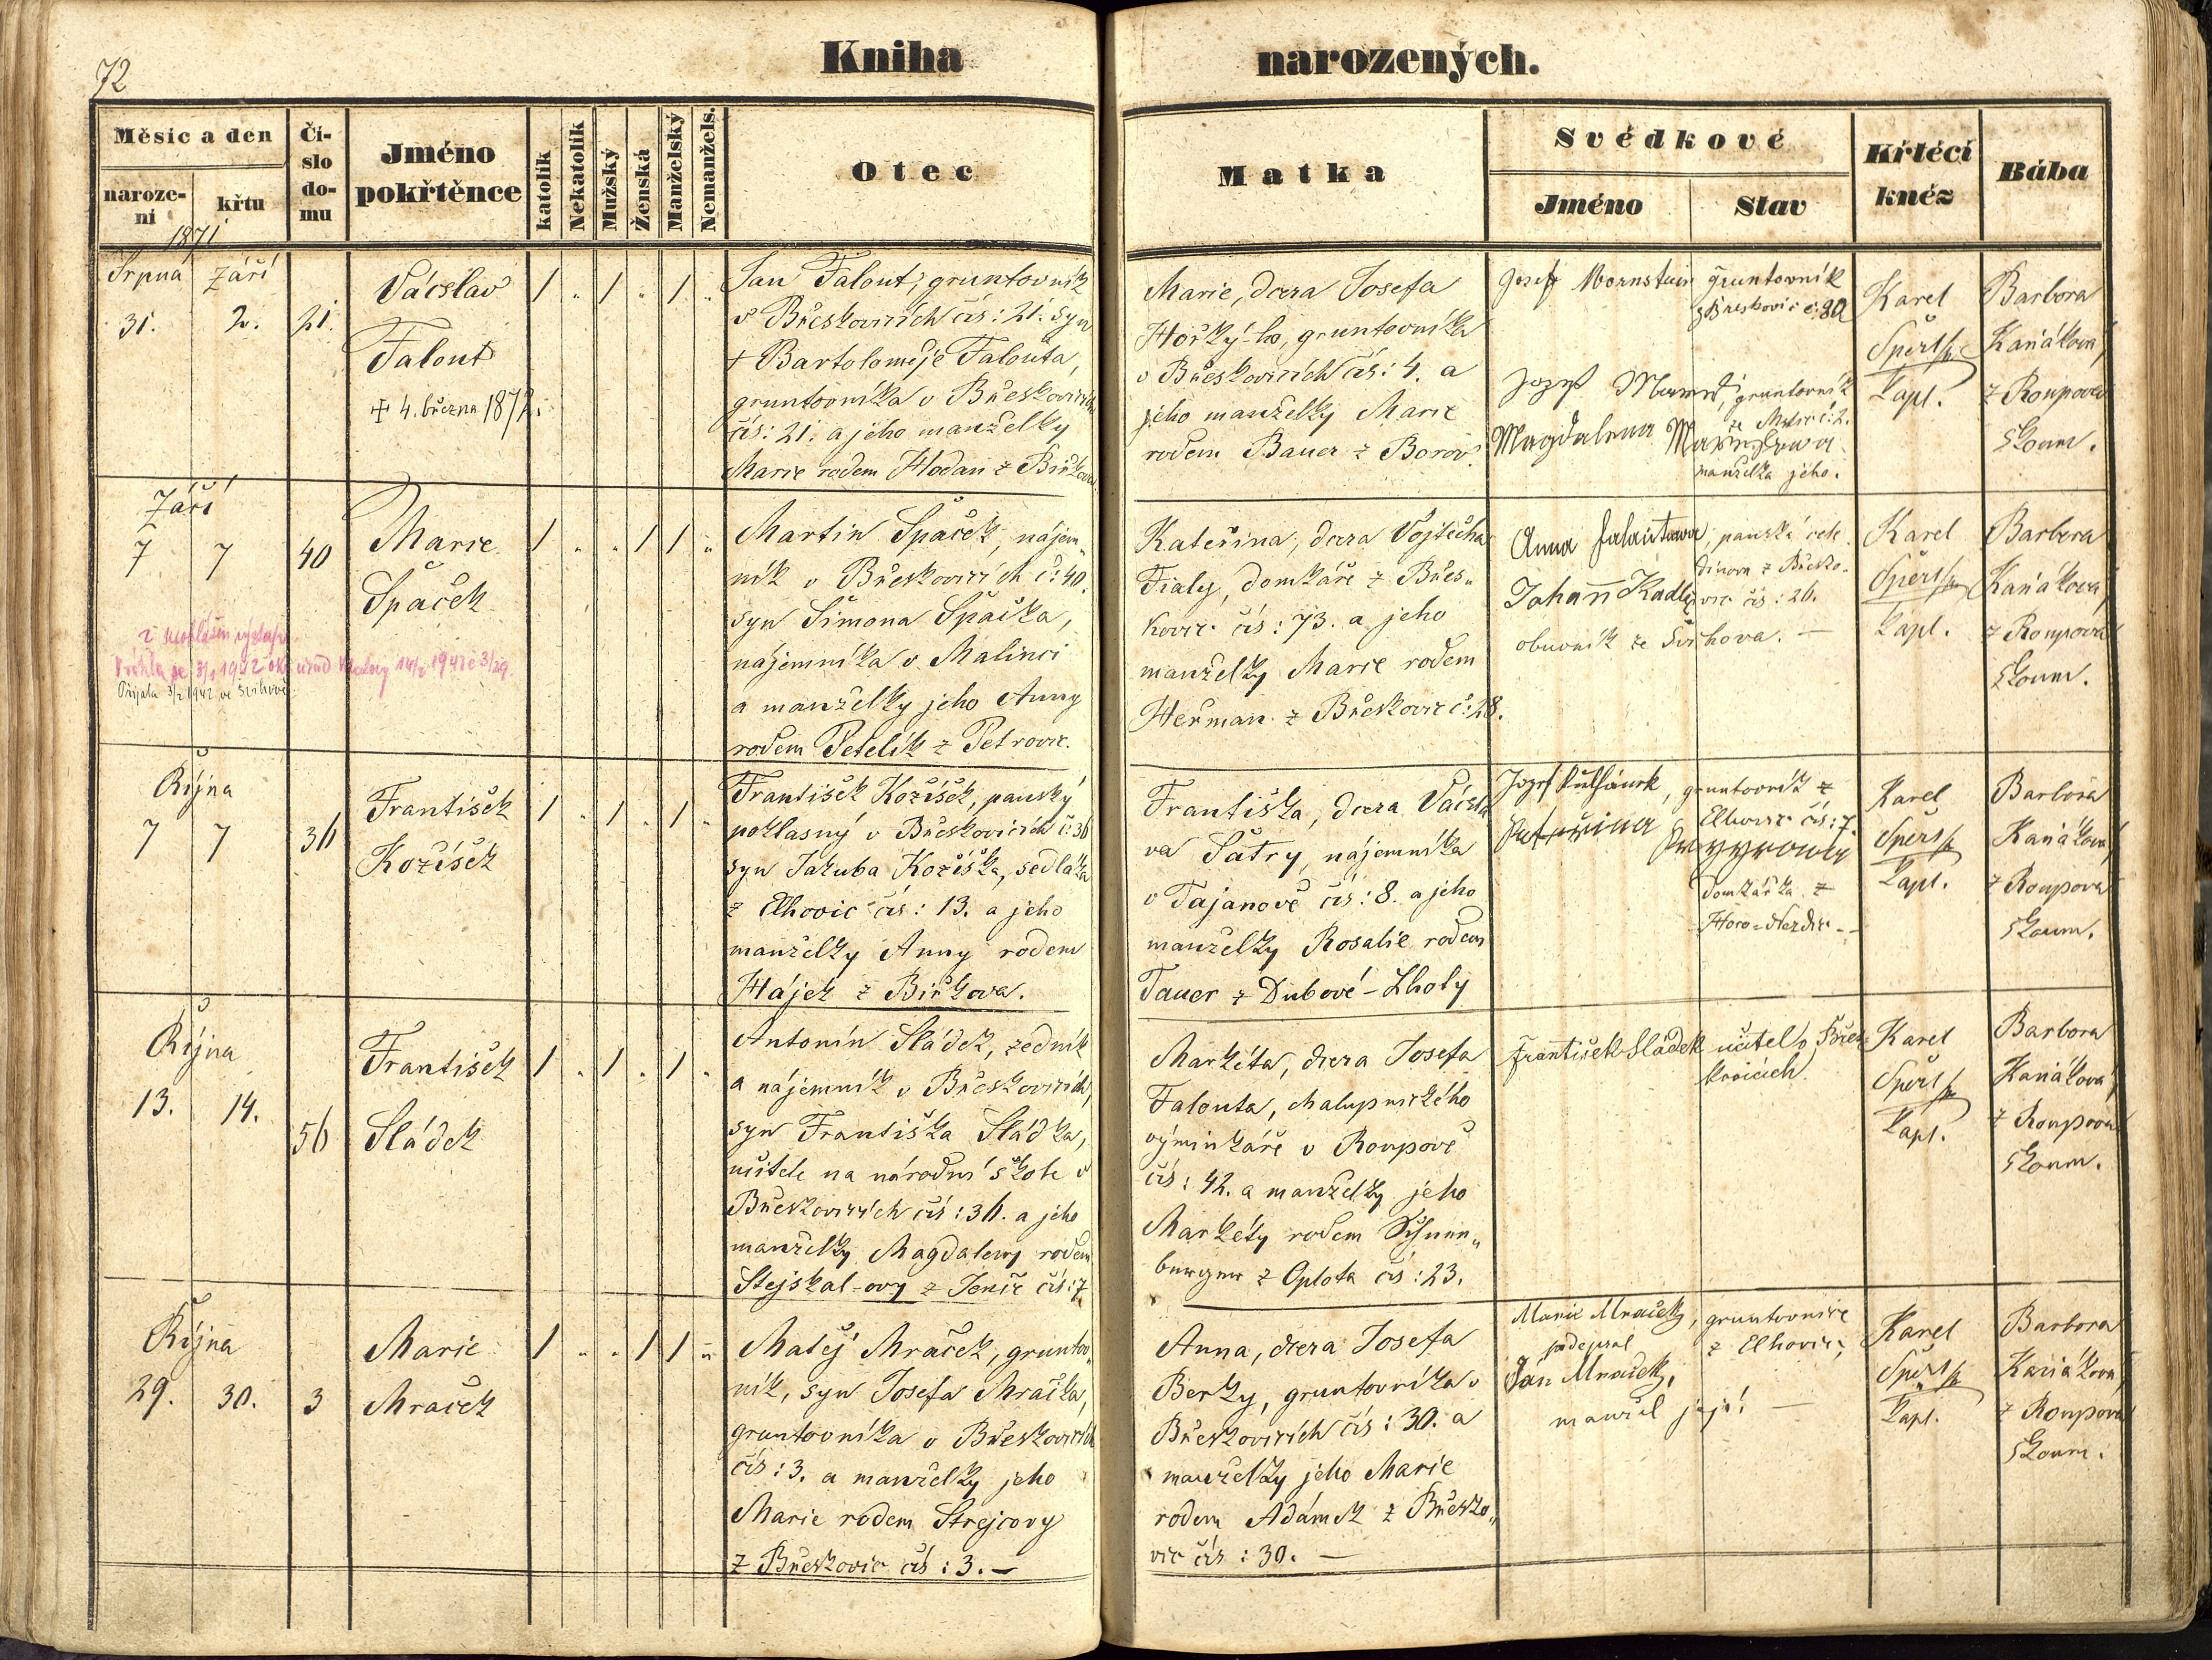 72
Kniha narozených.
Měsíc a den
naroze-
ní
křtu
Čí-
slo
do-
mu
Jméno
pokřtěnce
katolík
Nekatolík
Mužský
Ženská
Manželský
Nemanžels.
Otec
Matka
Svědkové
Jméno
Stav
Křtěcí
kněz
Bába
1871
Srpna Září
31. 2. 21.
Václav
Falout
+ 4. března 1872.
/ " / " / "
Jan Falout, gruntovník
v Břeskovicích čís: 21. syn
+ Bartoloměje Falouta,
gruntovníka v Břeskovicích
čís: 21. a jeho manželky
Marie rodem Hodan z Biřkova
Marie, dcera Josefa
Horký-ho, gruntovníka
v Břeskovicích čís: 4. a
jeho manželky Marie
rodem Bauer z Borov.
Josef Mornstein gruntovník
z Břeskovic č: 80
Josef gruntovník
Magdalena
manželka jeho.
Karel
Šperl
kapl.
Barbora
Kaňáková
z Roupova
zkoum.
Září
7 7 40
Marie
Špaček
/ " " / / "
Martin Špaček, nájem-
ník v Břeskovicích č: 40.
syn Šimona Špačka,
nájemníka v Malinci
a manželky jeho Anny
rodem Petelík z Petrovic.
Kateřina, dcera Vojtěcha
Fialy, domkáře z Břes-
kovic čís: 73. a jeho
manželky Marie rodem
Heřman z Břeskovic č: 28.
Anna
Johann Kadle
vic čís: 26.
obuvník ze Švihova. —
Karel
Šperl
kapl.
Barbora
Kaňáková
z Roupova
zkoum.
Října
7 7 36
František
Kožíšek
/ " / " / "
František Kožíšek, panský
poklasný v Břeskovicích č: 36
syn Jakuba Kožíška, sedláka
z Elhovic čís: 13. a jeho
manželky Anny rodem
Hájek z Biřkova.
Františka, dcera Václa
va Šatry, nájemníka
v Tajanově čís: 8. a jeho
manželky Rosalie rodem
Tauer z Dubové-Lhoty
Josef gruntovník z
Elhovic čís: 7.
domkářka z
Karel
Šperl
kapl.
Barbora
Kaňáková
z Roupova
zkoum.
Října
13. 14. 56
František
Sládek
/ " / " / "
Antonín Sládek, zedník
a nájemník v Břeskovicích,
syn Františka Sládka,
učitele na národní škole v
Břeskovicích čís: 36. a jeho
manželky Magdaleny rodem
Stejskal-ovy z Jenic čís: 7
Markéta, dcera Josefa
Falouta, chalupnického
výminkáře v Roupově
čís: 42. a manželky jeho
Markéty rodem Schnen-
berger z Oplota čís: 23.
František Sládek učitel v Břes-
kovicích.
Karel
Šperl
kapl.
Barbora
Kaňáková
z Roupova
zkoum.
Října
29. 30. 3
Marie
Mraček
/ " " / / "
Matěj Mraček, gruntov-
ník, syn Josefa Mračka,
gruntovníka v Břeskovicích
čís: 3. a manželky jeho
Marie rodem Strejcovy
z Břeskovic čís: 3. —
Anna, dcera Josefa
Berky, gruntovníka v
Břeskovicích čís: 30. a
manželky jeho Marie
rodem Adámek z Břesko-
vic čís: 30. —
Marie Mraček, gruntovnice
podepsal z Elhovic,
Ján Mraček,
manžel její. —
Karel
Šperl
kapl.
Barbora
Kaňáková
z Roupova
zkoum.